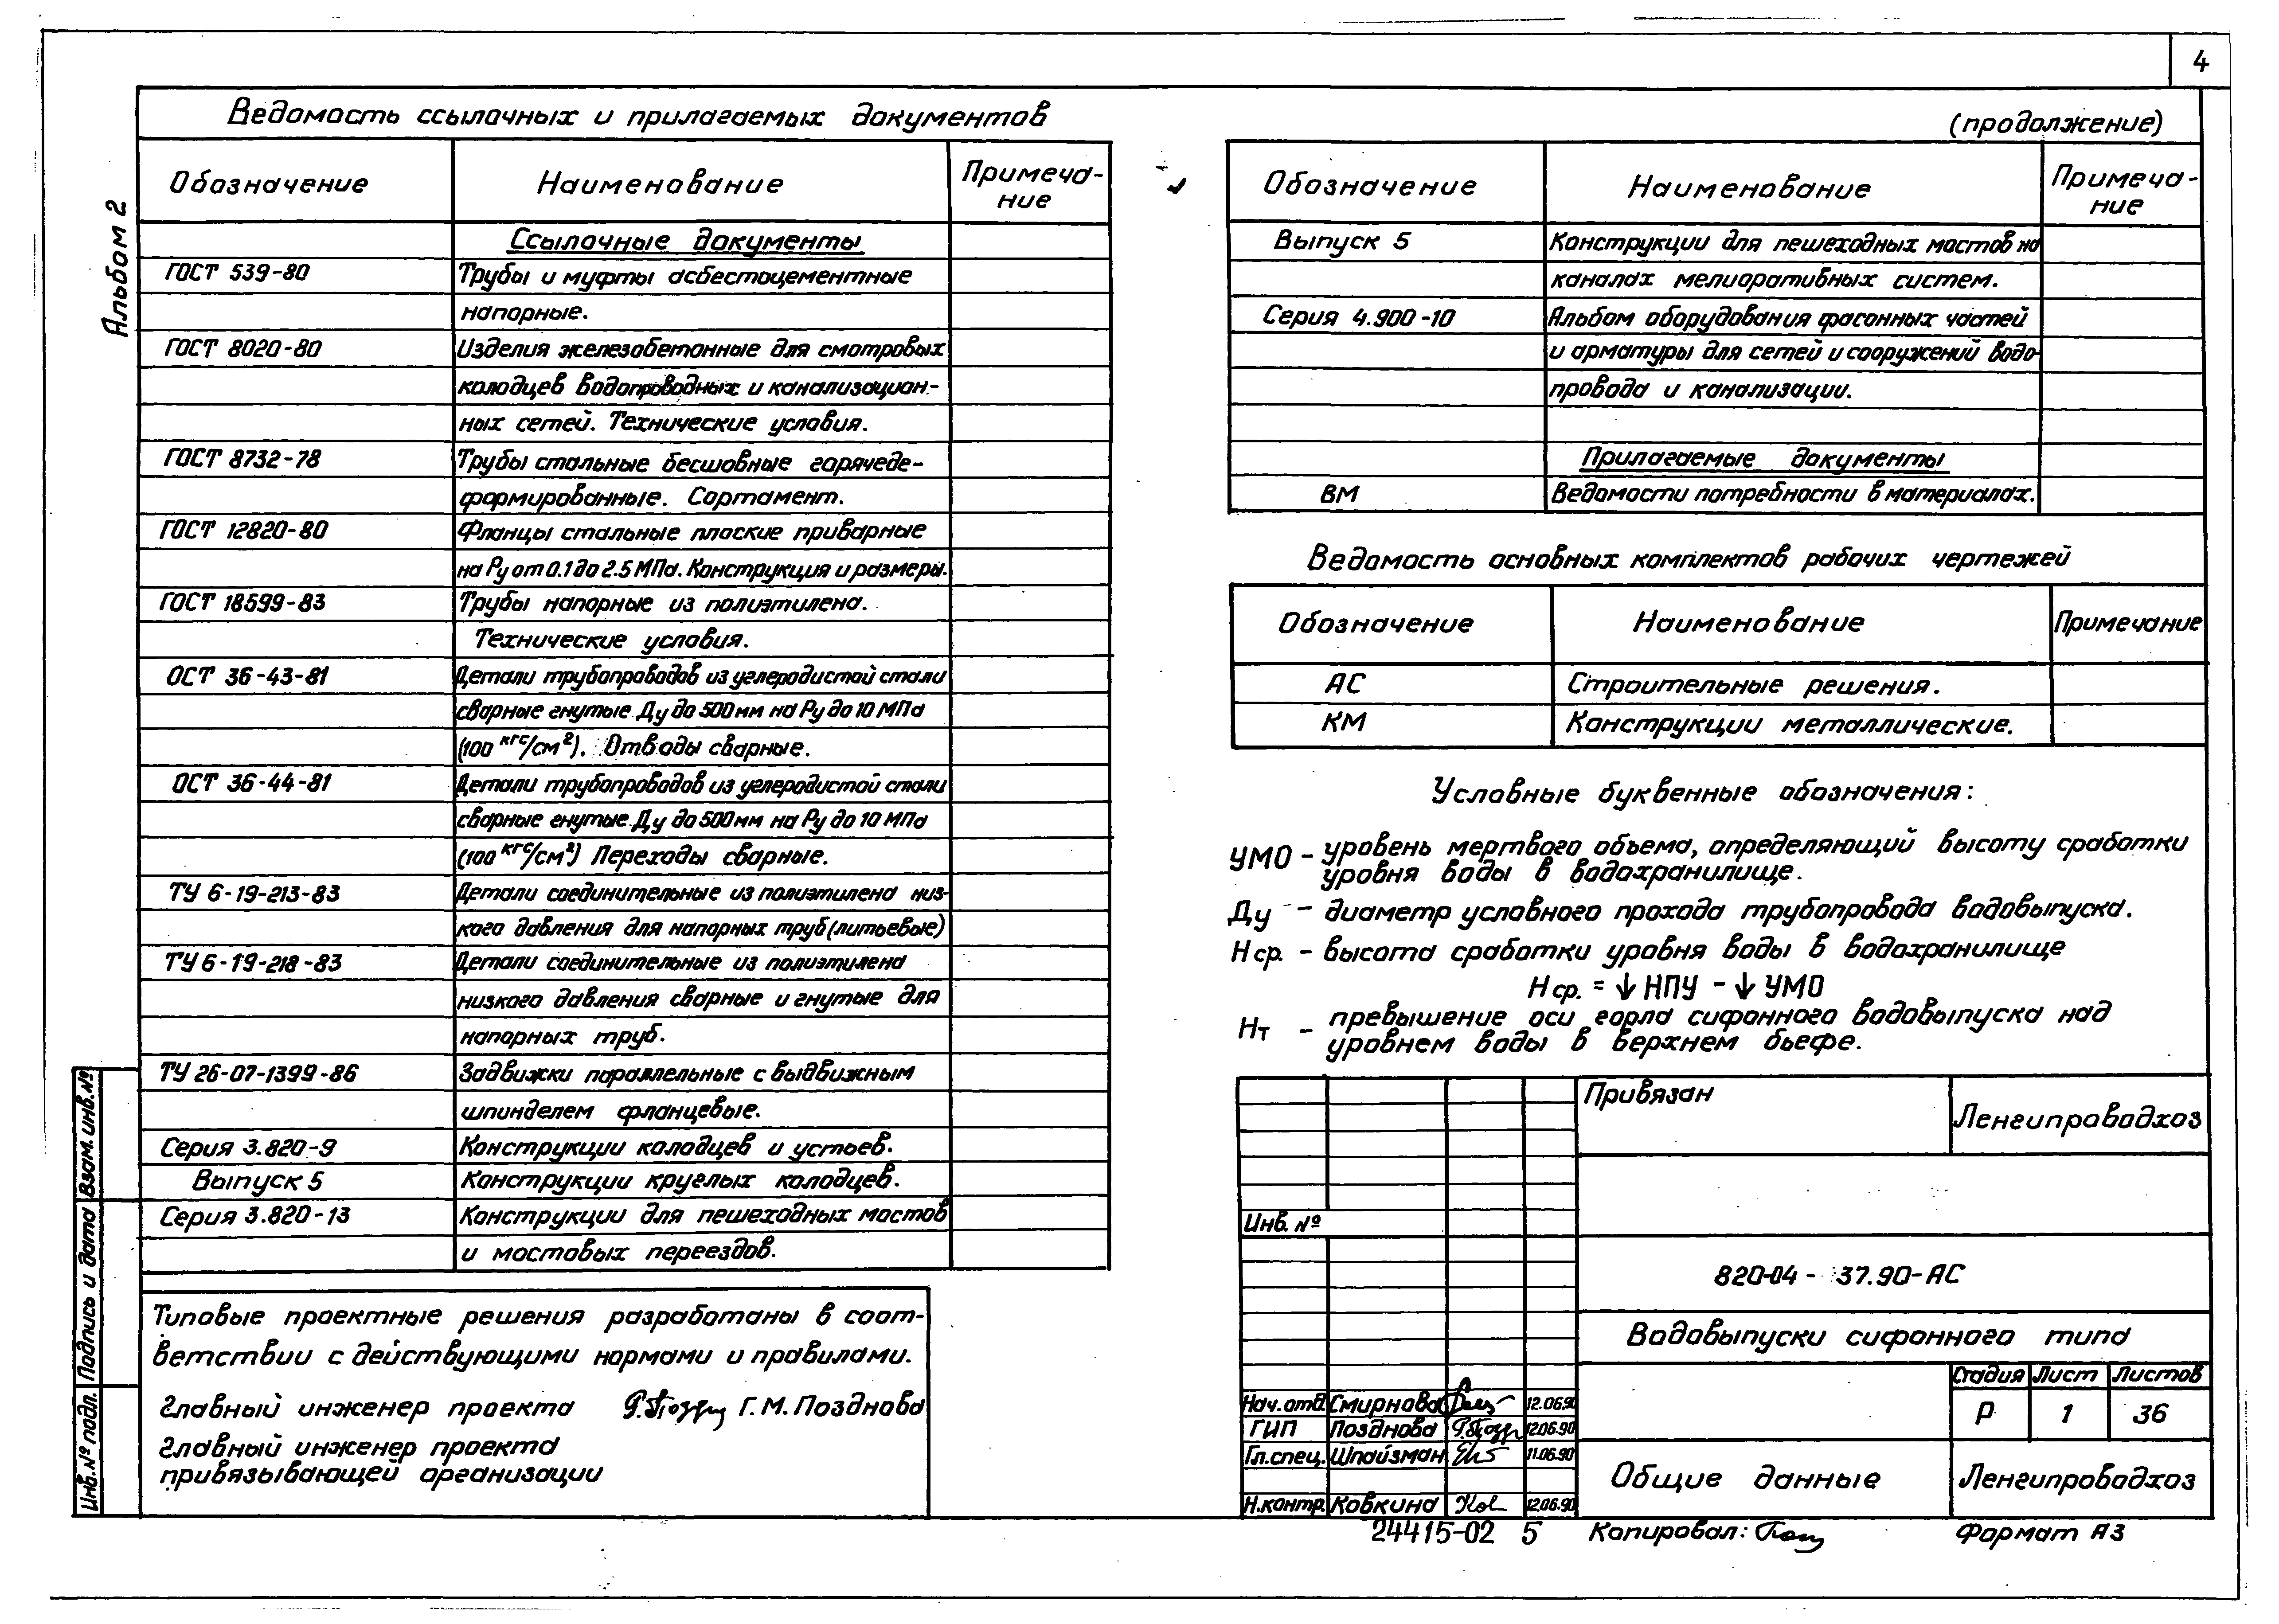 4
Альбом 2
Ведомость ссылочных и прилагаемых документов
Обозначение Наименование Примеча-
ние
Ссылочные документы
ГОСТ 539-80 Трубы и муфты асбестоцементные
напорные.
ГОСТ 8020-80 Изделия железобетонные для смотровых
колодцев водопроводных и канализацион-
ных сетей. Технические условия.
ГОСТ 8732-78 Трубы стальные бесшовные горячеде-
формированные. Сортамент.
ГОСТ 12820-80 Фланцы стальные плоские приварные
на Ру от 0.1 до 2.5 МПа. Конструкция и размеры.
ГОСТ 18599-83 Трубы напорные из полиэтилена.
Технические условия.
ОСТ 36-43-81 Детали трубопроводов из углеродистой стали
сварные гнутые Ду до 500мм на Ру до 10 МПа
(100 кгс/см²). Отводы сварные.
ОСТ 36-44-81 Детали трубопроводов из углеродистой стали
сварные гнутые Ду до 500мм на Ру до 10 МПа
(100 кгс/см²) Переходы сварные.
ТУ 6-19-213-83 Детали соединительные из полиэтилена низ-
кого давления для напорных труб (литьевые)
ТУ 6-19-218-83 Детали соединительные из полиэтилена
низкого давления сварные и гнутые для
напорных труб.
ТУ 26-07-1399-86 Задвижки параллельные с выдвижным
шпинделем фланцевые.
Серия 3.820-9 Конструкции колодцев и устьев.
Выпуск 5 Конструкции круглых колодцев.
Серия 3.820-13 Конструкции для пешеходных мостов
и мостовых переездов.
Типовые проектные решения разработаны в соот-
ветствии с действующими нормами и правилами.
Главный инженер проекта Г. М. Позднова
Главный инженер проекта
привязывающей организации
Взам. инв. №
Подпись и дата
Инв. № подл.
(продолжение)
Обозначение Наименование Примеча-
ние
Выпуск 5 Конструкции для пешеходных мостов на
каналах мелиоративных систем.
Серия 4.900-10 Альбом оборудования фасонных частей
и арматуры для сетей и сооружений водо-
провода и канализации.
Прилагаемые документы
ВМ Ведомости потребности в материалах.
Ведомость основных комплектов рабочих чертежей
Обозначение Наименование Примечание
АС Строительные решения.
КМ Конструкции металлические.
Условные буквенные обозначения:
УМО - уровень мертвого объема, определяющий высоту сработки
уровня воды в водохранилище.
Ду - диаметр условного прохода трубопровода водовыпуска.
Нср. - высота сработки уровня воды в водохранилище
Нср. = ↓ НПУ - ↓ УМО
Нт - превышение оси горла сифонного водовыпуска над
уровнем воды в верхнем бьефе.
Привязан Ленгипроводхоз
Инв. №
820-04- 37.90-АС
Водовыпуски сифонного типа
Стадия Лист Листов
Р 1 36
Нач. отд. Смирнова 12.06.90
ГИП Позднова 12.06.90
Гл. спец. Шпайзман 11.06.90
Н. контр. Ковкина 12.06.90
Общие данные Ленгипроводхоз
24415-02 5 Копировал: Формат А3